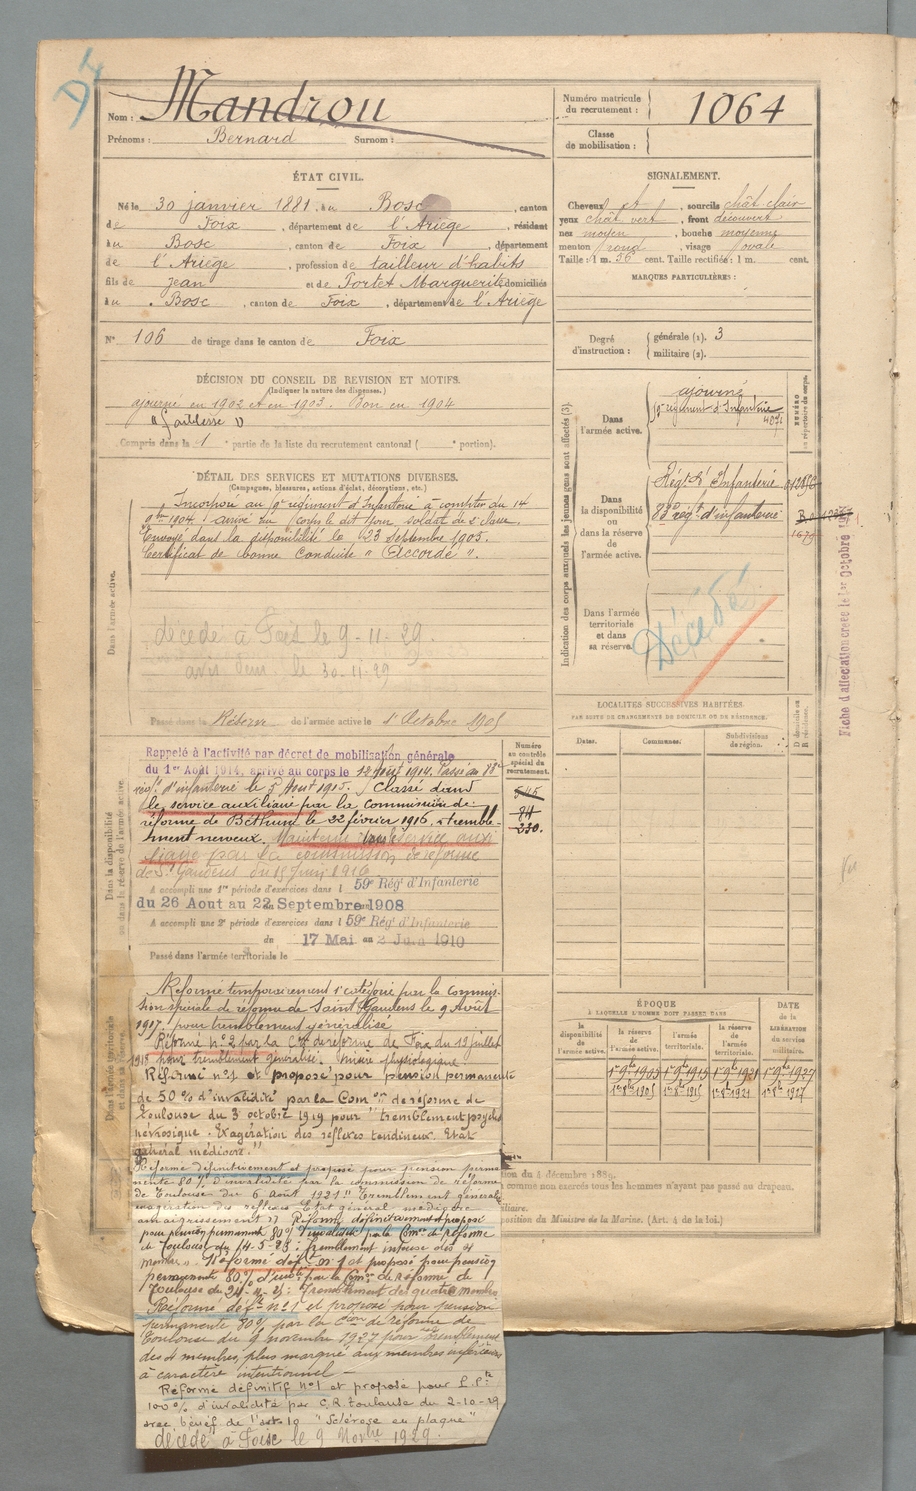 Nom : Mandrou
Prénoms : Bernard Surnom :
Numéro matricule du recrutement : 1064
Classe de mobilisation :
ÉTAT CIVIL.
Né le 30 janvier 1881, à u Bosc, canton
de Foix, département de l'Ariège, résidant
à u Bosc, canton de Foix, département
de l'Ariège, profession de tailleur d'habits
fils de Jean et de Tortet Marguerite domiciliés
à u Bosc, canton de Foix, département de l'Ariège
N° 106 de tirage dans le canton de Foix
SIGNALEMENT.
Cheveux et, sourcils chât. clair
yeux chât. vert, front découvert
nez moyen, bouche moyenne
menton rond, visage ovale
Taille : 1 m. 56 cent. Taille rectifiée : 1 m. cent.
MARQUES PARTICULIÈRES :
Degré d'instruction : générale (1). 3
militaire (2).
DÉCISION DU CONSEIL DE REVISION ET MOTIFS.
(Indiquer la nature des dispenses.)
ajourné en 1902 et en 1903. Bon en 1904
" faiblesse "
Compris dans la 1 e partie de la liste du recrutement cantonal ( e portion).
DÉTAIL DES SERVICES ET MUTATIONS DIVERSES.
(Campagnes, blessures, actions d'éclat, décorations, etc.)
Dans l'armée active.
Incorporé au 9e régiment d'Infanterie à compter du 14
9bre 1904, arrivé au corps le dit jour, soldat de 2e classe.
Envoyé dans la disponibilité le 23 Septembre 1905.
Certificat de bonne Conduite " Accordé ".
décédé à Foix le 9-11-29.
le 30-11-29
Passé dans la Réserve de l'armée active le 1er Octobre 1905
Indication des corps auxquels les jeunes gens sont affectés (3).
Dans l'armée active.
ajourné
9e régiment d'Infanterie
NUMÉRO au répertoire du corps.
Dans la disponibilité ou dans la réserve de l'armée active.
Régt d'Infanterie
83e régt d'infanterie
Dans l'armée territoriale et dans sa réserve.
Décédé
Fiche d'affectation créée le 1er Octobre
LOCALITÉS SUCCESSIVES HABITÉES
PAR SUITE DE CHANGEMENTS DE DOMICILE OU DE RÉSIDENCE.
Dates. Communes. Subdivisions de région. D domicile ou R résidence.
Dans la disponibilité ou dans la réserve de l'armée active.
Numéro au contrôle spécial du recrutement.
545
84
330.
Rappelé à l'activité par décret de mobilisation générale
du 1er Août 1914, arrivé au corps le 12 Août 1914. Passé au 88e
régt d'infanterie le 5 Août 1915. Classé dans
le service auxiliaire par la Commission de
réforme de Béthune le 22 février 1916, tremble-
ment nerveux. Maintenu dans le service auxi
liaire par la commission de réforme
de St Gaudens du 15 Juin 1916
A accompli une 1re période d'exercices dans l 59e Régt d'Infanterie
du 26 Aout au 22 Septembre 1908
A accompli une 2e période d'exercices dans l 59e Régt d'Infanterie
du 17 Mai au 2 Juin 1910
Passé dans l'armée territoriale le
Dans l'armée territoriale et dans sa réserve.
Réformé temporairement 1e catégorie par la commis-
sion spéciale de réforme de Saint Gaudens le 9 Août
1917. pour tremblement généralisé
Réformé n° 2 par la Con de réforme de Foix du 15 juillet
1918 pour tremblement généralisé. Misère physiologique
Réformé n°1 et proposé pour pension permanente
de 50 % d'invalidité par la Comon de réforme de
Toulouse du 3 octobre 1919 pour "tremblement psycho
névrosique. Exagération des réflexes tendineux. Etat
général médiocre."
Réformé définitivement et proposé pour pension perma
nente 80 % d'invalidité par la commission de réforme
de Toulouse du 6 août 1921 "Tremblement généralisé
exagération des réflexes Etat général médiocre
amaigrissement" Réformé définitivement et proposé
pour pension permanente 80 % d'invalidité par la Comon de réforme
de Toulouse du 14-5-23: Tremblement intense des 4
membres. Réformé défif n°1 et proposé pour pension
permanente 80 % d'invalté par la Comon de Réforme de
Toulouse du 24-4-25: Tremblement des quatre membres.
Réformé défif n°1 et proposé pour pension
permanente 80 % par la Con de réforme de
Toulouse du 9 novembre 1927 pour tremblement
des 4 membres, plus marqué aux membres inférieurs
à caractère intentionnel —
Réformé définitif n°1 et proposé pour P. Pte
100 % d'invalidité par C.R. Toulouse du 2-10-29
avec bénéf. de l'art 10 "Sclérose en plaque"
décédé à Foix le 9 Novbre 1929.
ÉPOQUE
À LAQUELLE L'HOMME DOIT PASSER DANS
la disponibilité de l'armée active. la réserve de l'armée active. l'armée territoriale. la réserve de l'armée territoriale.
DATE de la LIBÉRATION du service militaire.
1er 9bre 1905 1er 9bre 1915 1er 9bre 1921 1er 9bre 1927
1er 8bre 1905 1er 8bre 1915 1er 8bre 1921 1er 8bre 1927
tion du 4 décembre 1889.
comme non exercés tous les hommes n'ayant pas passé au drapeau.
iliaire.
position du Ministre de la Marine. (Art. 4 de la loi.)